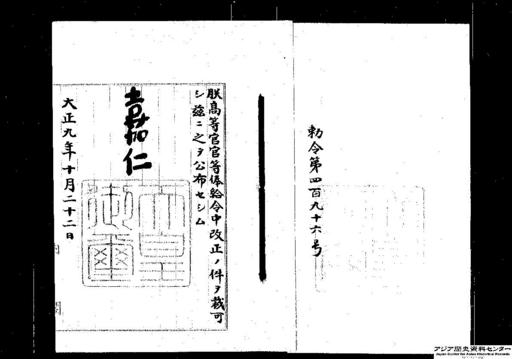 勅令第四百九十六号
朕高等官官等俸給令中改正ノ件ヲ裁可
シ茲ニ之ヲ公布セシム
嘉仁
天皇御璽
大正九年十月二十二日
アジア歴史資料センター
Japan Center for Asian Historical Records